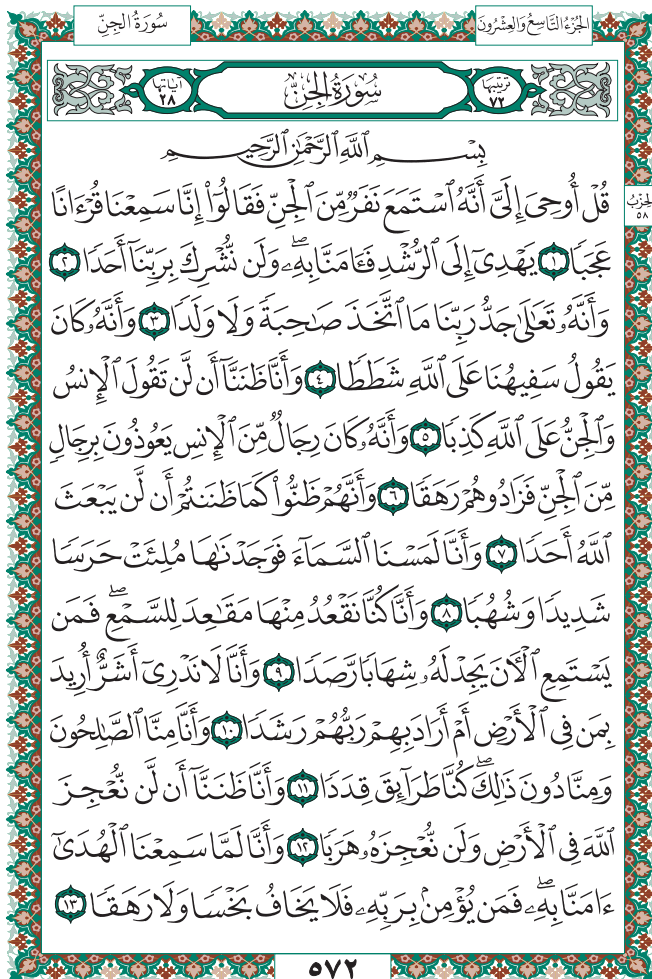 سُورَةُ الجِنِّ
الجُزْءُ التَّاسِعُ وَالعِشْرُونَ
آيَاتُهَا ٢٨
سُورَةُ الجِنِّ
تَرْتِيبُهَا ٧٢
بِسْمِ ٱللَّهِ ٱلرَّحْمَٰنِ ٱلرَّحِيمِ
الحِزْبُ ٥٨
قُلْ أُوحِىَ إِلَىَّ أَنَّهُ ٱسْتَمَعَ نَفَرٌ مِّنَ ٱلْجِنِّ فَقَالُوٓا۟ إِنَّا سَمِعْنَا قُرْءَانًا
عَجَبًا ١ يَهْدِىٓ إِلَى ٱلرُّشْدِ فَـَٔامَنَّا بِهِۦ ۖ وَلَن نُّشْرِكَ بِرَبِّنَآ أَحَدًا ٢
وَأَنَّهُۥ تَعَٰلَىٰ جَدُّ رَبِّنَا مَا ٱتَّخَذَ صَٰحِبَةً وَلَا وَلَدًا ٣ وَأَنَّهُۥ كَانَ
يَقُولُ سَفِيهُنَا عَلَى ٱللَّهِ شَطَطًا ٤ وَأَنَّا ظَنَنَّآ أَن لَّن تَقُولَ ٱلْإِنسُ
وَٱلْجِنُّ عَلَى ٱللَّهِ كَذِبًا ٥ وَأَنَّهُۥ كَانَ رِجَالٌ مِّنَ ٱلْإِنسِ يَعُوذُونَ بِرِجَالٍ
مِّنَ ٱلْجِنِّ فَزَادُوهُمْ رَهَقًا ٦ وَأَنَّهُمْ ظَنُّوا۟ كَمَا ظَنَنتُمْ أَن لَّن يَبْعَثَ
ٱللَّهُ أَحَدًا ٧ وَأَنَّا لَمَسْنَا ٱلسَّمَآءَ فَوَجَدْنَٰهَا مُلِئَتْ حَرَسًا
شَدِيدًا وَشُهُبًا ٨ وَأَنَّا كُنَّا نَقْعُدُ مِنْهَا مَقَٰعِدَ لِلسَّمْعِ ۖ فَمَن
يَسْتَمِعِ ٱلْـَٔانَ يَجِدْ لَهُۥ شِهَابًا رَّصَدًا ٩ وَأَنَّا لَا نَدْرِىٓ أَشَرٌّ أُرِيدَ
بِمَن فِى ٱلْأَرْضِ أَمْ أَرَادَ بِهِمْ رَبُّهُمْ رَشَدًا ١٠ وَأَنَّا مِنَّا ٱلصَّٰلِحُونَ
وَمِنَّا دُونَ ذَٰلِكَ ۖ كُنَّا طَرَآئِقَ قِدَدًا ١١ وَأَنَّا ظَنَنَّآ أَن لَّن نُّعْجِزَ
ٱللَّهَ فِى ٱلْأَرْضِ وَلَن نُّعْجِزَهُۥ هَرَبًا ١٢ وَأَنَّا لَمَّا سَمِعْنَا ٱلْهُدَىٰٓ
ءَامَنَّا بِهِۦ ۖ فَمَن يُؤْمِنۢ بِرَبِّهِۦ فَلَا يَخَافُ بَخْسًا وَلَا رَهَقًا ١٣
٥٧٢